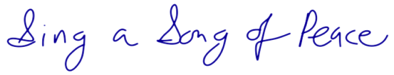 Sing a Song of Peace